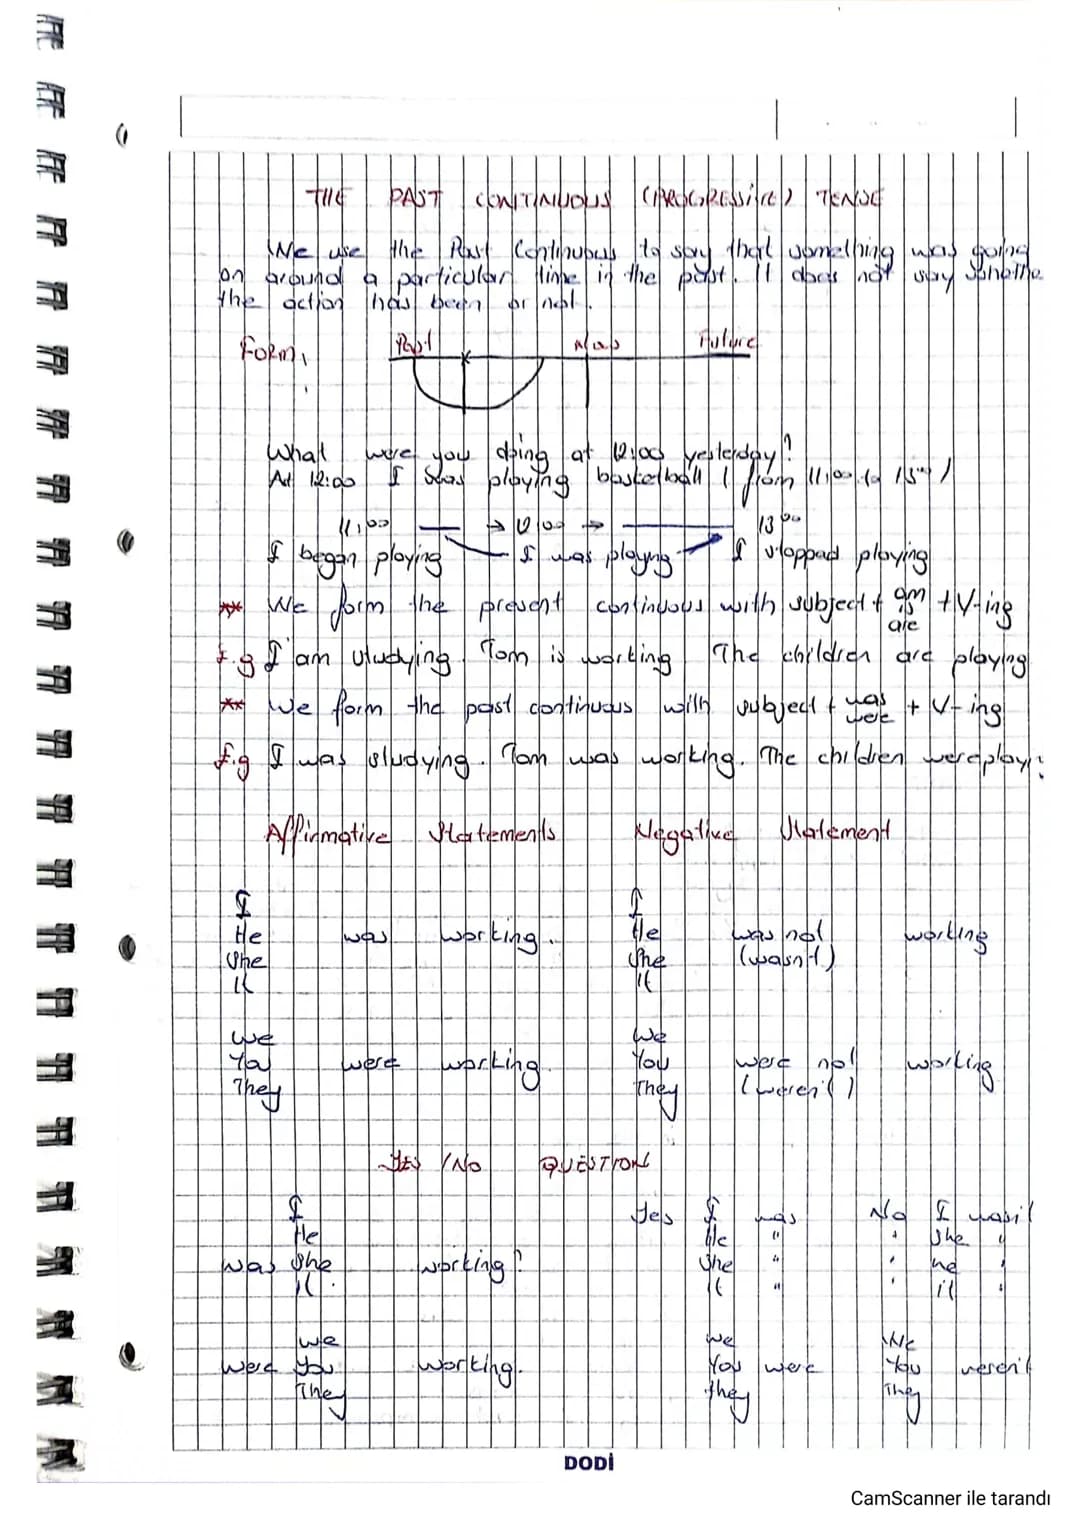 THE PAST CONTINUOUS (PROGRESSIVE) TENSE
We use the Past Continuous to say that something was going
on around a particular time in the past. It does not say whethe
the action has been or not.
Form,
Past Now Future
What were you doing at 12:00 yesterday?
At 12:00 I was playing basketball ( from 11:00 to 15:00 )
11:00 → 12:00 → 13:00
I began playing I was playing I stopped playing
** We form the present continuous with subject + am is are + V-ing
E.g I am studying. Tom is working The children are playing
** We form the past continuous with subject + was were + V-ing
E.g I was studying. Tom was working. The children were play
Affirmative Statements Negative Statement
I I
He was working. He was not working
She She (wasn't)
It It
We We
You were working. You were not working
They They (weren't)
YES / NO QUESTION
I Yes I was No I wasn't
He He " " She "
was She working? She " " he "
It It " " it "
we we We
were you working. You were You weren't
They they They
DODİ
CamScanner ile tarandı